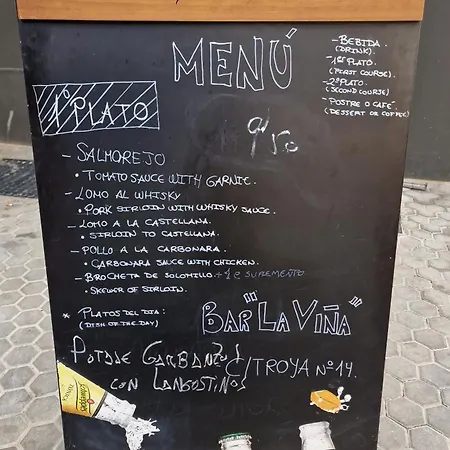 MENÚ
- BEBIDA
(DRINK).
- 1er PLATO.
(FIRST COURSE).
- 2º PLATO.
(SECOND COURSE)
- POSTRE O CAFÉ
(DESSERT OR COFFEE)
1º PLATO
9'50
- SALMOREJO
• TOMATO SAUCE WITH GARNIC.
- LOMO AL WHISKY
• PORK SIRLOIN WITH WHISKY SAUCE.
- LOMO A LA CASTELLANA.
• SIRLOIN TO CASTELLANA.
- POLLO A LA CARBONARA.
• CARBONARA SAUCE WITH CHICKEN.
- BROCHETA DE SOLOMILLO +1€ SUPLEMENTO
• SKEWER OF SIRLOIN.
* PLATOS DEL DIA:
(DISH OF THE DAY)
BAR "LA VIÑA"
POTAJE GARBANZOS
CON LANGOSTINOS
C/TROYA Nº 14.
Schweppes